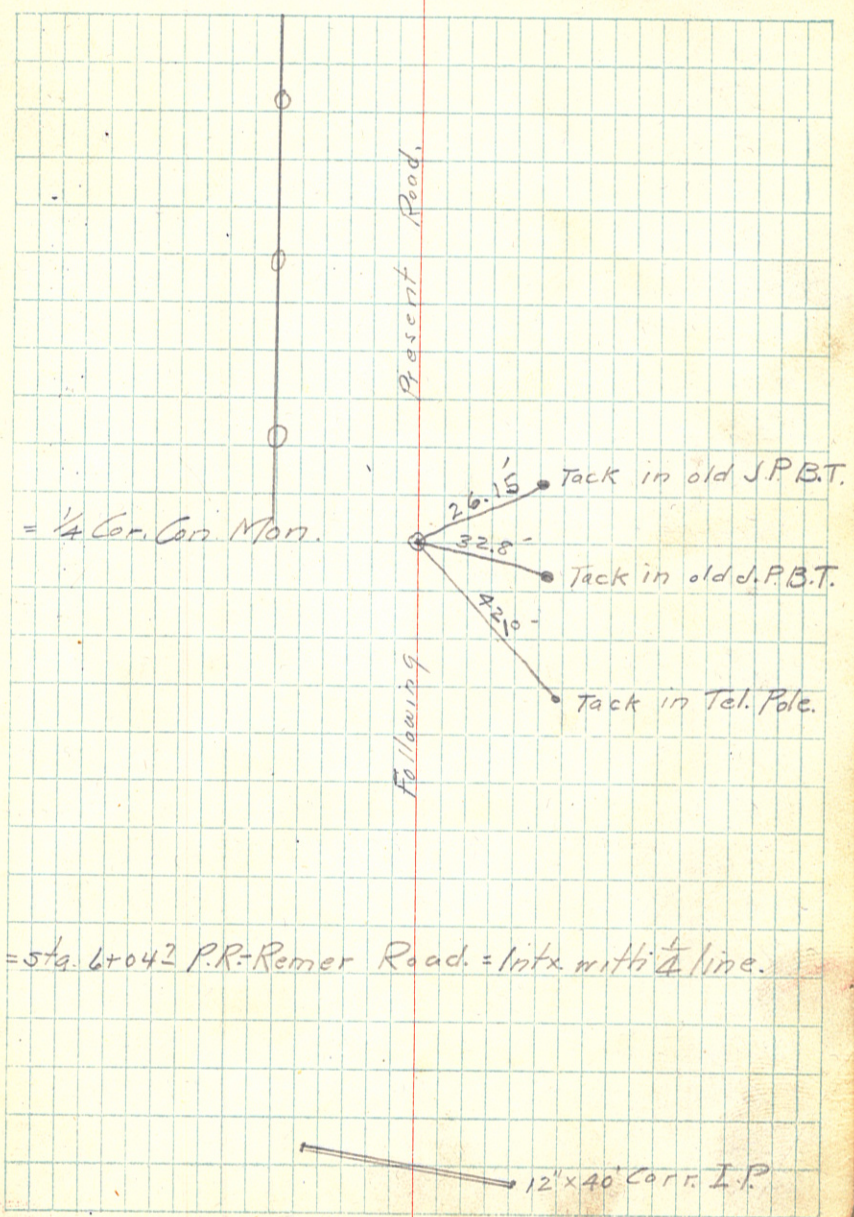 Present Road.
26.15'
Tack in old J.P.B.T.
= 1/4 Cor. Con Mon.
32.8'
Tack in old J.P.B.T.
42.0'
Tack in Tel. Pole.
Following
= sta. 6+04² P.R.-Remer Road. = Intx. with 1/4 line.
12"x40' Corr. I.P.